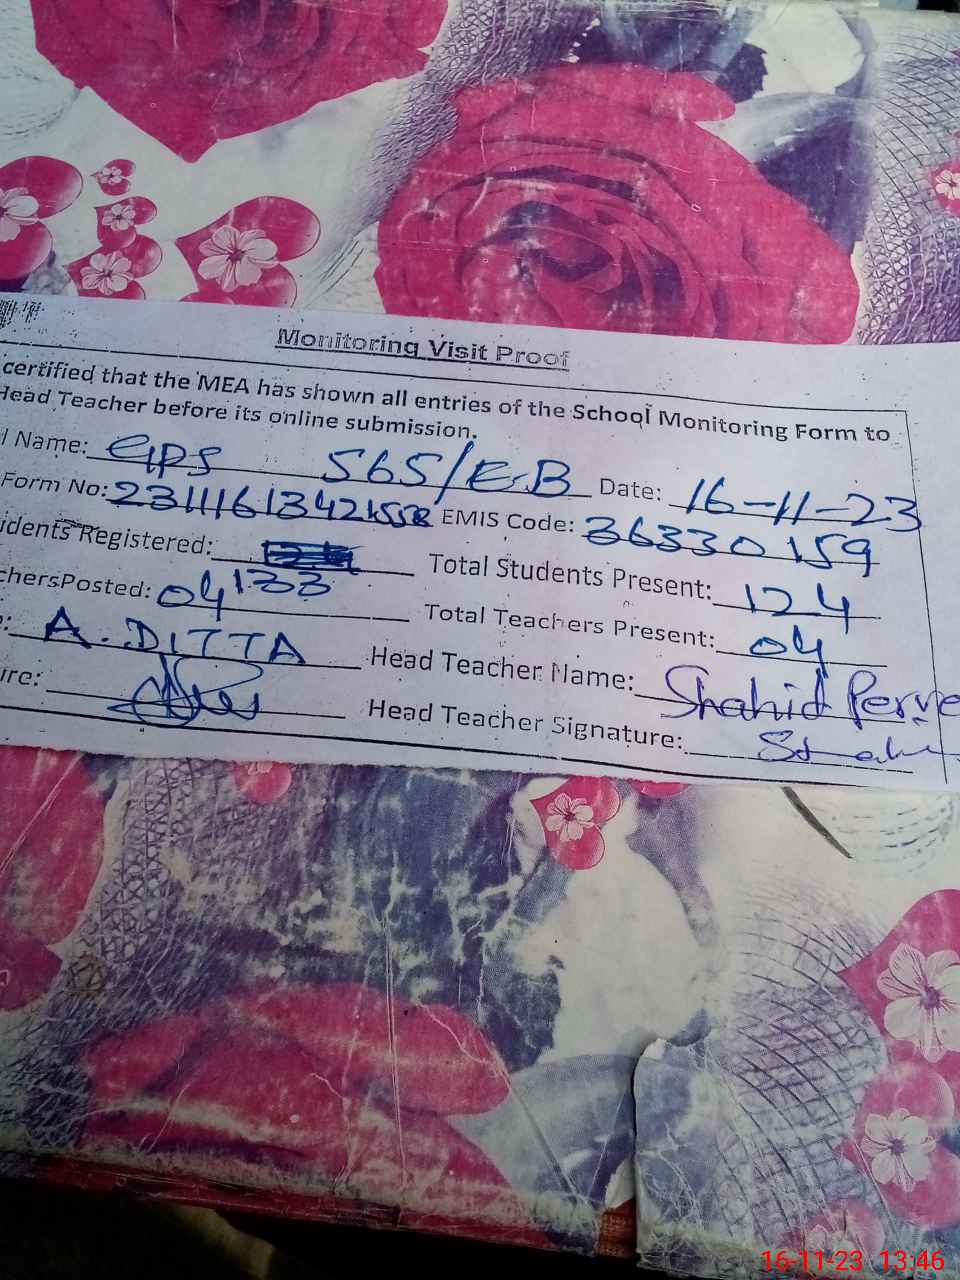 Monitoring Visit Proof
certified that the MEA has shown all entries of the School Monitoring Form to
Head Teacher before its online submission.
l Name: GPS 565/E.B Date: 16-11-23
Form No: EMIS Code: 36330159
udents Registered: 133 Total Students Present: 124
chersPosted: 04 Total Teachers Present: 04
e: A. DITTA Head Teacher Name: Shahid Perve
ure: Head Teacher Signature:
16-11-23 13:46